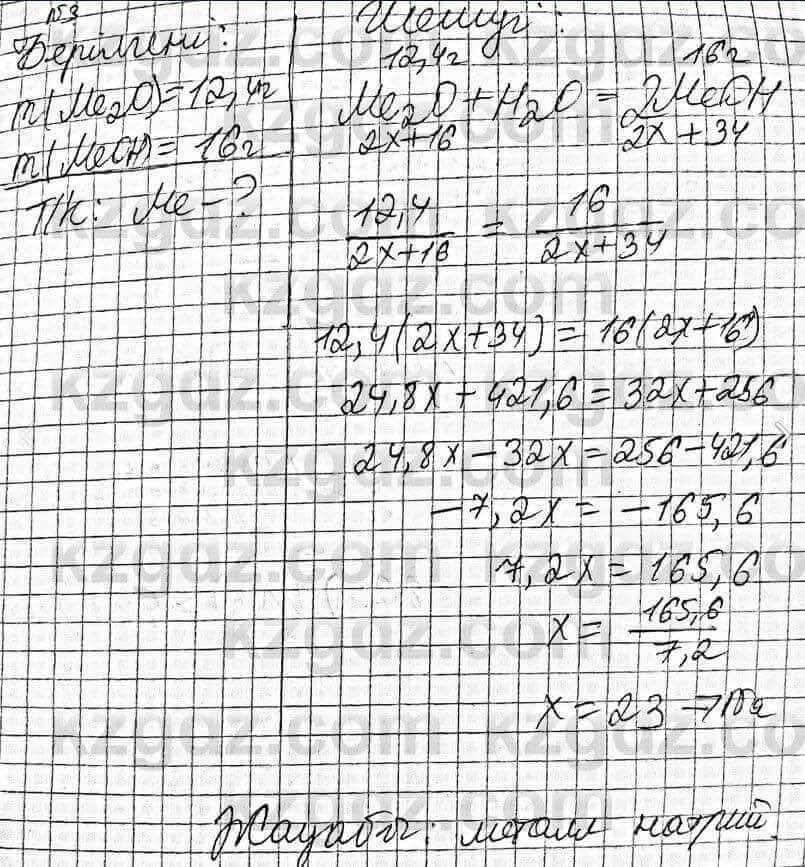 №3
Берілгені:
m(Me₂O)=12,4г
m(MeOH)= 16г
Т/К: Me-?
Шешуі:
12,4г 16г
Me₂O+H₂O=2MeOH
2x+16 2x+34
12,4/2x+16 = 16/2x+34
12,4(2x+34)=16(2x+16)
24,8x+421,6=32x+256
24,8x-32x=256-421,6
-7,2x=-165,6
7,2x=165,6
x=165,6/7,2
x=23→Na
Жауабы: металл натрий.
kzgdz.com